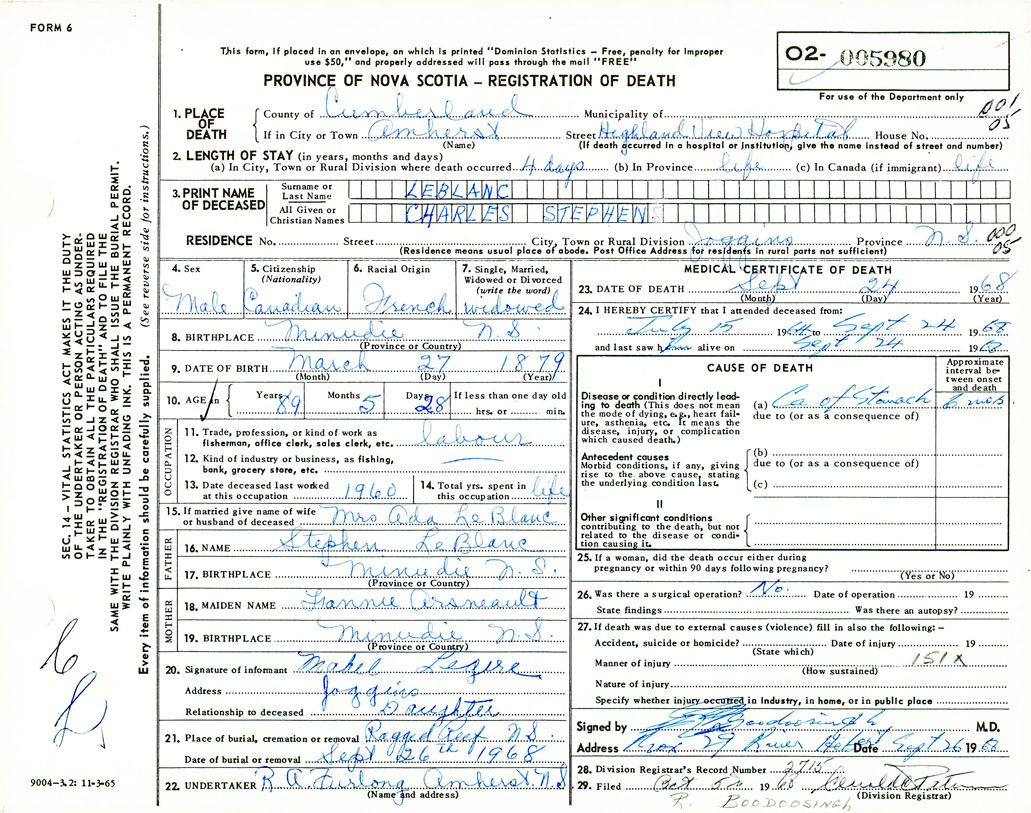 FORM 6
This form, if placed in an envelope, on which is printed "Dominion Statistics – Free, penalty for improper
use $50," and properly addressed will pass through the mail "FREE"
PROVINCE OF NOVA SCOTIA – REGISTRATION OF DEATH
O2- 005980
For use of the Department only
001
05
1. PLACE OF DEATH
County of Cumberland Municipality of
If in City or Town Amherst Street Highland View Hospital House No.
(Name) (If death occurred in a hospital or institution, give the name instead of street and number)
2. LENGTH OF STAY (in years, months and days)
(a) In City, Town or Rural Division where death occurred 4 days (b) In Province life (c) In Canada (if immigrant) life
3. PRINT NAME OF DECEASED
Surname or Last Name LEBLANC
All Given or Christian Names CHARLES STEPHEN
000
05
RESIDENCE No. Street City, Town or Rural Division Joggins Province N.S.
(Residence means usual place of abode. Post Office Address for residents in rural parts not sufficient)
4. Sex Male
5. Citizenship (Nationality) Canadian
6. Racial Origin French
7. Single, Married, Widowed or Divorced (write the word) widowed
8. BIRTHPLACE Minudie N.S.
(Province or Country)
9. DATE OF BIRTH March 27 1879
(Month) (Day) (Year)
10. AGE in Years 89 Months 5 Days 28 If less than one day old hrs. or min.
OCCUPATION
11. Trade, profession, or kind of work as fisherman, office clerk, sales clerk, etc. labour
12. Kind of industry or business, as fishing, bank, grocery store, etc.
13. Date deceased last worked at this occupation 1960
14. Total yrs. spent in this occupation life
15. If married give name of wife or husband of deceased Mrs Ada LeBlanc
FATHER
16. NAME Stephen LeBlanc
17. BIRTHPLACE Minudie N.S.
(Province or Country)
MOTHER
18. MAIDEN NAME Fannie Arsneault
19. BIRTHPLACE Minudie N.S.
(Province or Country)
20. Signature of informant Mabel Legere
Address Joggins
Relationship to deceased Daughter
21. Place of burial, cremation or removal Ragged Reef N.S.
Date of burial or removal Sept 26th 1968
22. UNDERTAKER R A Furlong Amherst N.S.
(Name and address)
MEDICAL CERTIFICATE OF DEATH
23. DATE OF DEATH Sept 24 1968
(Month) (Day) (Year)
24. I HEREBY CERTIFY that I attended deceased from:
July 15 19 to Sept 24 1968
and last saw him alive on Sept 24 1968
CAUSE OF DEATH
Approximate interval between onset and death
I
Disease or condition directly leading to death (This does not mean the mode of dying, e.g., heart failure, asthenia, etc. It means the disease, injury, or complication which caused death.)
(a) Ca of Stomach 6 mos.
due to (or as a consequence of)
Antecedent causes
Morbid conditions, if any, giving rise to the above cause, stating the underlying condition last.
(b)
due to (or as a consequence of)
(c)
II
Other significant conditions contributing to the death, but not related to the disease or condition causing it.
25. If a woman, did the death occur either during
pregnancy or within 90 days following pregnancy?
(Yes or No)
26. Was there a surgical operation? No. Date of operation 19
State findings Was there an autopsy?
27. If death was due to external causes (violence) fill in also the following: –
Accident, suicide or homicide? Date of injury 19
(State which)
Manner of injury 151X
(How sustained)
Nature of injury
Specify whether injury occurred in Industry, in home, or in public place
Signed by Boodoosingh M.D.
Address Box 29 River Hebert Date Sept 26 1968
28. Division Registrar's Record Number 2715
29. Filed Oct 19
(Division Registrar)
R. BOODOOSINGH
SEC. 14 – VITAL STATISTICS ACT MAKES IT THE DUTY
OF THE UNDERTAKER OR PERSON ACTING AS UNDER-
TAKER TO OBTAIN ALL THE PARTICULARS REQUIRED
IN THE "REGISTRATION OF DEATH" AND TO FILE THE
SAME WITH THE DIVISION REGISTRAR WHO SHALL ISSUE THE BURIAL PERMIT.
WRITE PLAINLY WITH UNFADING INK. THIS IS A PERMANENT RECORD.
Every item of information should be carefully supplied. (See reverse side for instructions.)
9004–3.2: 11-3-65